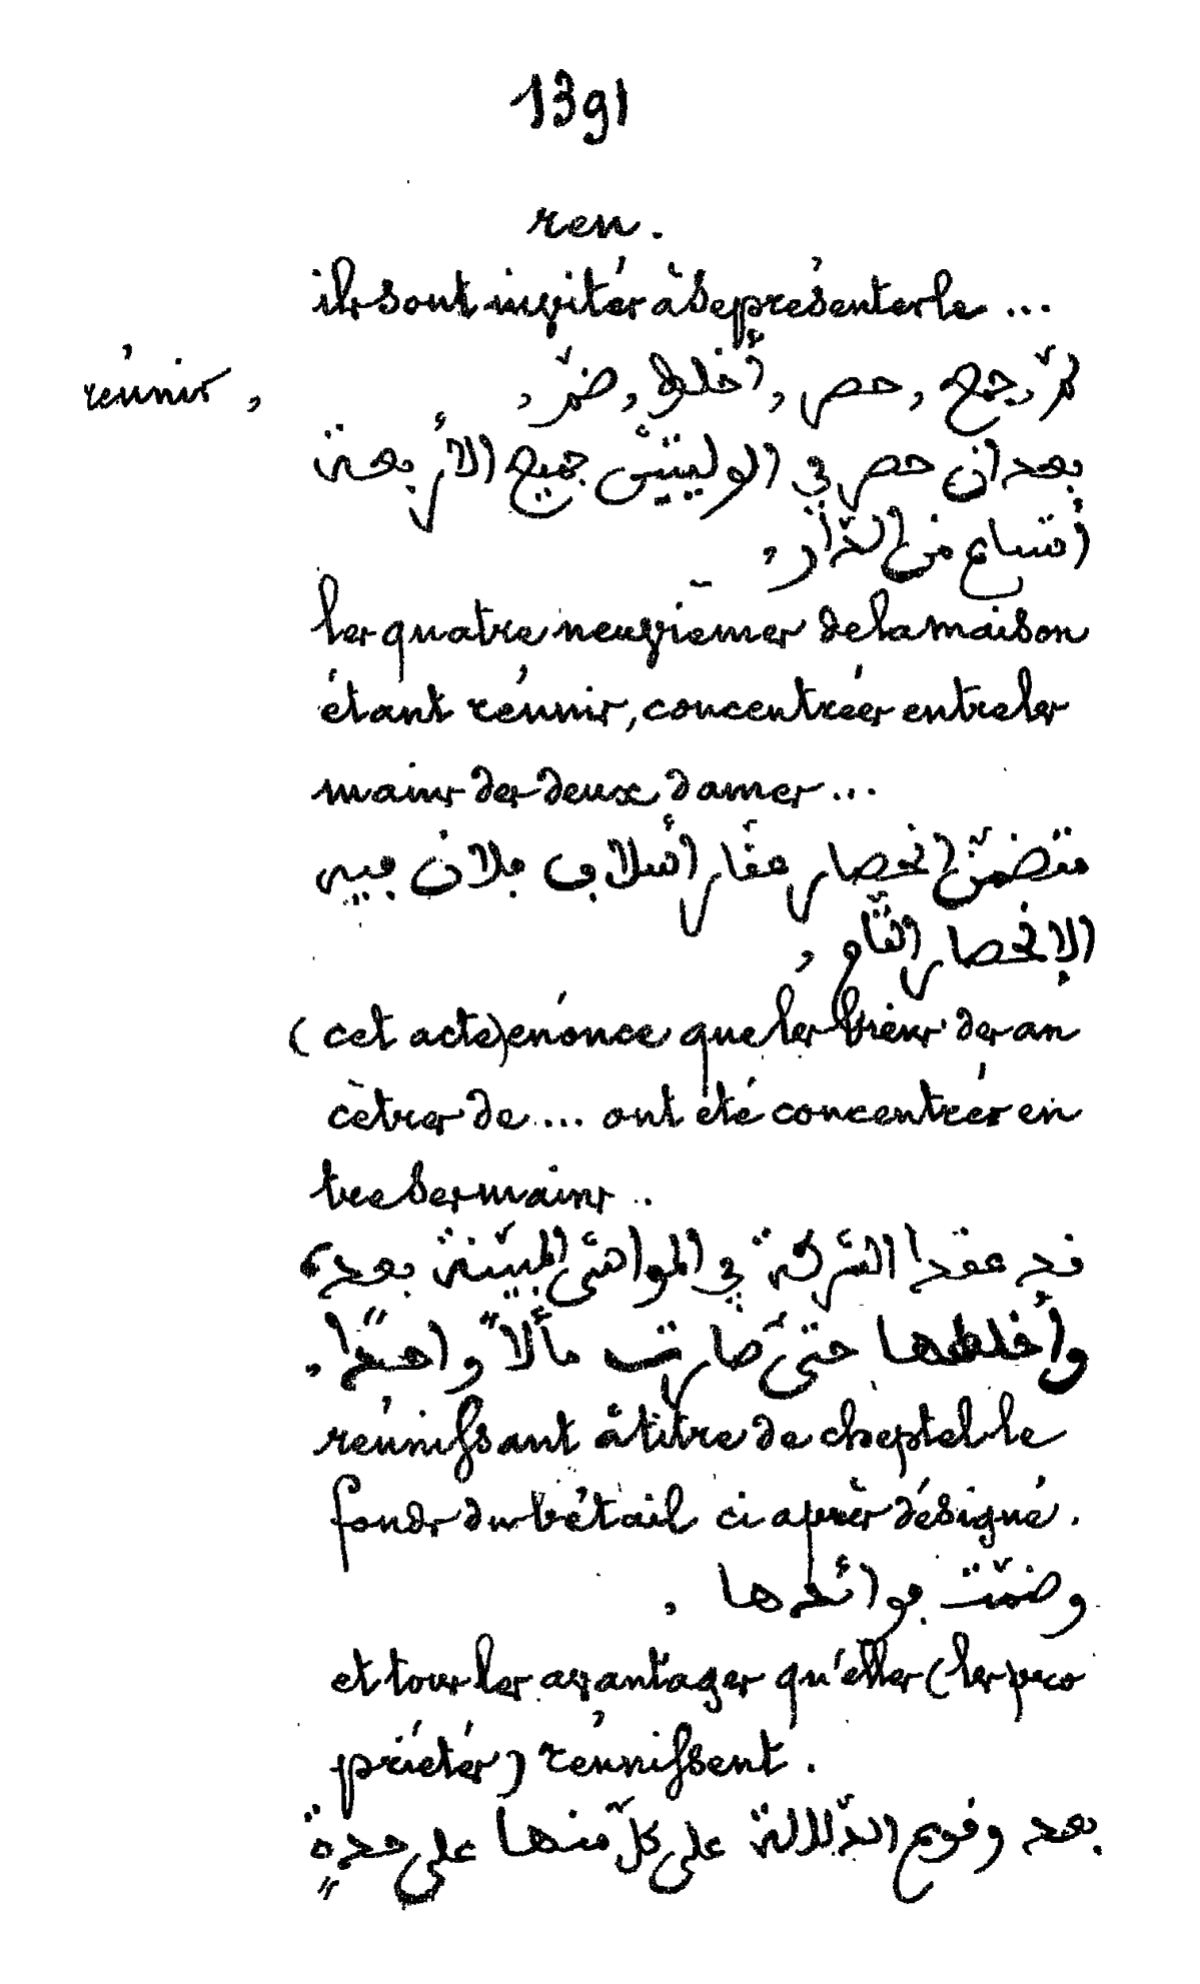 1391
ren.
ils sont invités à se présenter le ...
réunir,
لمّ, جمع, حصر, أخلط, ضمّ,
بعد ان حصر في الوليتين جميع الأربعة
أتساع من الدّار,
les quatre neuvièmes de la maison
étant réunis, concentrées entre les
mains des deux dames ...
متضمّن انحصار عقار أسلاف فلان فبيه
الإنحصار التّام,
(cet acte) énonce que les biens des an
cêtres de .... ont été concentrés en
tre ses mains ..
قد عقدا الشّركة في المواشى المبيّنة بعد،
وأخلطها حتّى صارت مألاً واحدًا.
réunissant à titre de cheptel le
fonds du bétail ci après désigné.
وضمّت فوائدها,
et tous les avantages qu'elles (les pro
priétés) réunissent.
بعد وقوع الدّلالة على كلّ منها على حدةٍ